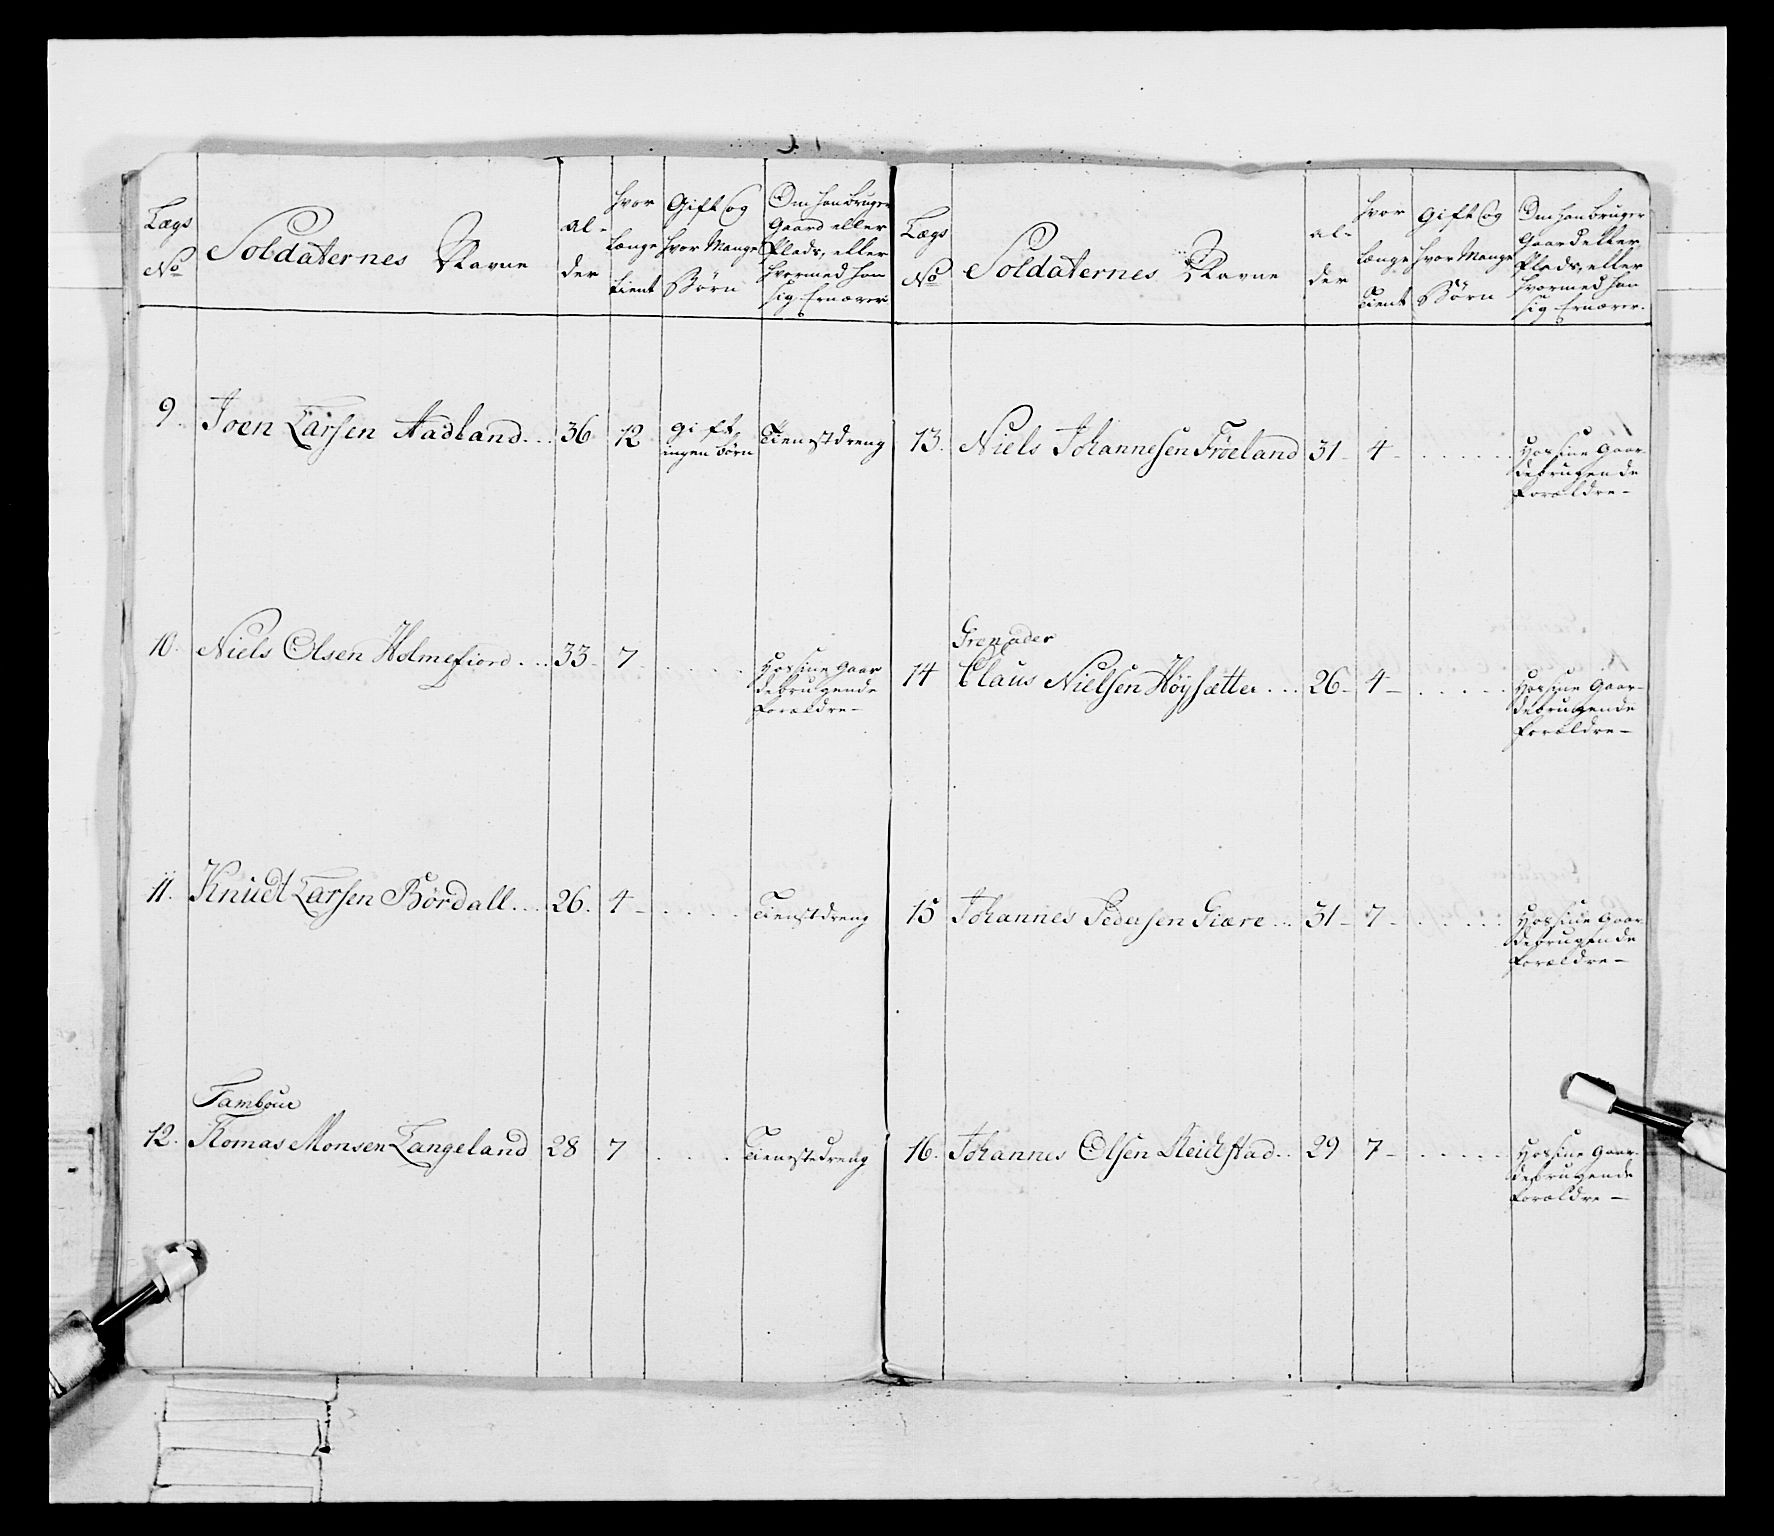 Lægs No
Soldaternes Navne
al-
der
hvor
længe
tient
Gift og
hvor Mange
Börn
Om han bruger
Gaard eller
Plads, eller
hvormed han
sig Ernærer
9. Joen Larsen Aadland... 36 12 gift Tienstdreng
ingen börn
10. Niels Olsen Holmefiord... 33- 7 ..... Hos sine Gaar
debrugende
Forældre-
11. Knudt Larsen Bördall... 26. 4- .... Tienstdreng
Tambour
12. Tomas Monsen Langeland 28 7 .... Tienstedreng
Lægs No
Soldaternes Navne
al-
der
hvor
længe
tient
gift og
hvor Mange
Börn
Om han bruger
Gaard eller
Plads, eller
hvormed han
sig Ernærer.
13. Niels Johannesen Fröeland 31- 4- ...... Hos sine Gaar
debrugende
Forældre-
Grenader
14 Claus Nielsen Höysætter... 26- 4- ..... Hos sine Gaar-
debrugende
Forældre-
15 Johannes Pedersen Giære.. 31- 7- ..... Hos sine Gaar
debrugende
Forældre-
16. Johannes Olsen Reichstad.. 29 7- ..... Hos sine Gaar-
debrugende
Forældre-